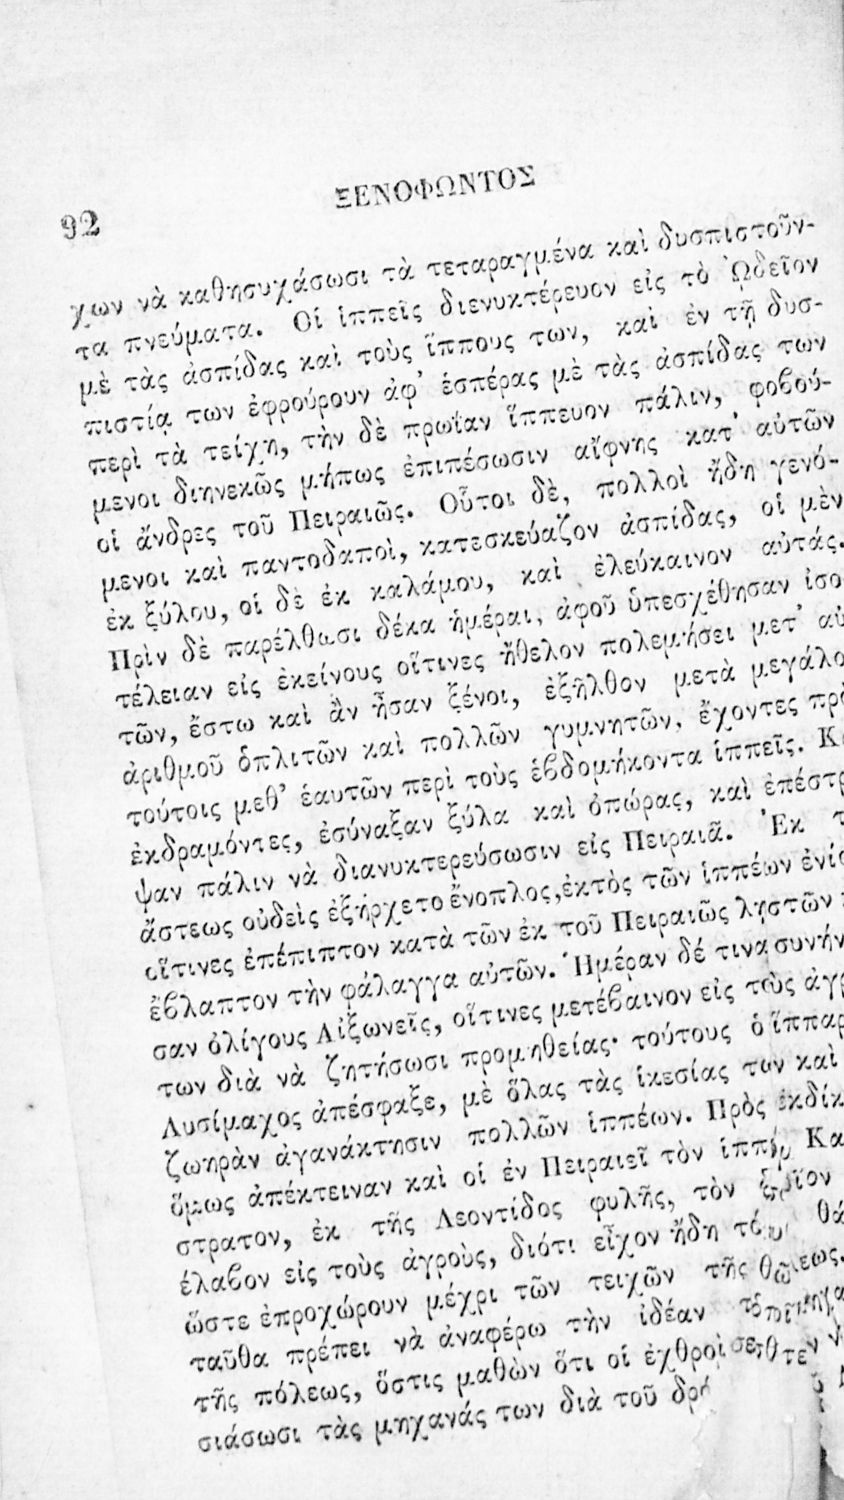 92
ΞΕΝΟΦΩΝΤΟΣ
χων νὰ καθησυχάσωσι τὰ τεταραγμένα καὶ δυσπιστοῦν-
τα πνεύματα. Οἱ ἱππεῖς διενυκτέρευον εἰς τὸ Ὠδεῖον
μὲ τὰς ἀσπίδας καὶ τοὺς ἵππους των, καὶ ἐν τῇ δυσ-
πιστίᾳ των ἐφρούρουν ἀφ’ ἑσπέρας μὲ τὰς ἀσπίδας των
περὶ τὰ τείχη, τὴν δὲ πρωΐαν ἵππευον πάλιν, φοβού-
μενοι διηνεκῶς μήπως ἐπιπέσωσιν αἴφνης κατ’ αὐτῶν
οἱ ἄνδρες τοῦ Πειραιῶς. Οὗτοι δὲ, πολλοὶ ἤδη γενό-
μενοι καὶ παντοδαποὶ, κατεσκεύαζον ἀσπίδας, οἱ μὲν
ἐκ ξύλου, οἱ δὲ ἐκ καλάμου, καὶ ἐλεύκαινον αὐτάς.
Πρὶν δὲ παρέλθωσι δέκα ἡμέραι, ἀφοῦ ὑπεσχέθησαν ἰσο
τέλειαν εἰς ἐκείνους οἵτινες ἤθελον πολεμήσει μετ’ αὐ
τῶν, ἔστω καὶ ἂν ἦσαν ξένοι, ἐξῆλθον μετὰ μεγάλο
ἀριθμοῦ ὁπλιτῶν καὶ πολλῶν γυμνητῶν, ἔχοντες πρὸ
τούτοις μεθ’ ἑαυτῶν περὶ τοὺς ἑβδομήκοντα ἱππεῖς. Κ
ἐκδραμόντες, ἐσύναξαν ξύλα καὶ ὀπώρας, καὶ ἐπέστρ
ψαν πάλιν νὰ διανυκτερεύσωσιν εἰς Πειραιᾶ. Ἐκ τ
ἄστεως οὐδεὶς ἐξήρχετο ἔνοπλος, ἐκτὸς τῶν ἱππέων ἐνίο
οἵτινες ἐπέπιπτον κατὰ τῶν ἐκ τοῦ Πειραιῶς λῃστῶν
ἔβλαπτον τὴν φάλαγγα αὐτῶν. Ἡμέραν δέ τινα συνήν
σαν ὀλίγους Αἰξωνεῖς, οἵτινες μετέβαινον εἰς τοὺς ἀγρ
των διὰ νὰ ζητήσωσι προμηθείας· τούτους ὁ ἵππαρ
Λυσίμαχος ἀπέσφαξε, μὲ ὅλας τὰς ἱκεσίας των καὶ
ζωηρὰν ἀγανάκτησιν πολλῶν ἱππέων. Πρὸς ἐκδίκ
ὅμως ἀπέκτειναν καὶ οἱ ἐν Πειραιεῖ τὸν ἱππέ Κα
στρατον, ἐκ τῆς Λεοντίδος φυλῆς, τὸν
έλαβον εἰς τοὺς ἀγροὺς, διότι εἶχον ἤδη θά
ὥστε ἐπροχώρουν μέχρι τῶν τειχῶν τῆς
ταῦθα πρέπει νὰ ἀναφέρω τὴν ἰδέαν
τῆς πόλεως, ὅστις μαθὼν ὅτι οἱ ἐχθροὶ
σιάσωσι τὰς μηχανάς των διὰ τοῦ